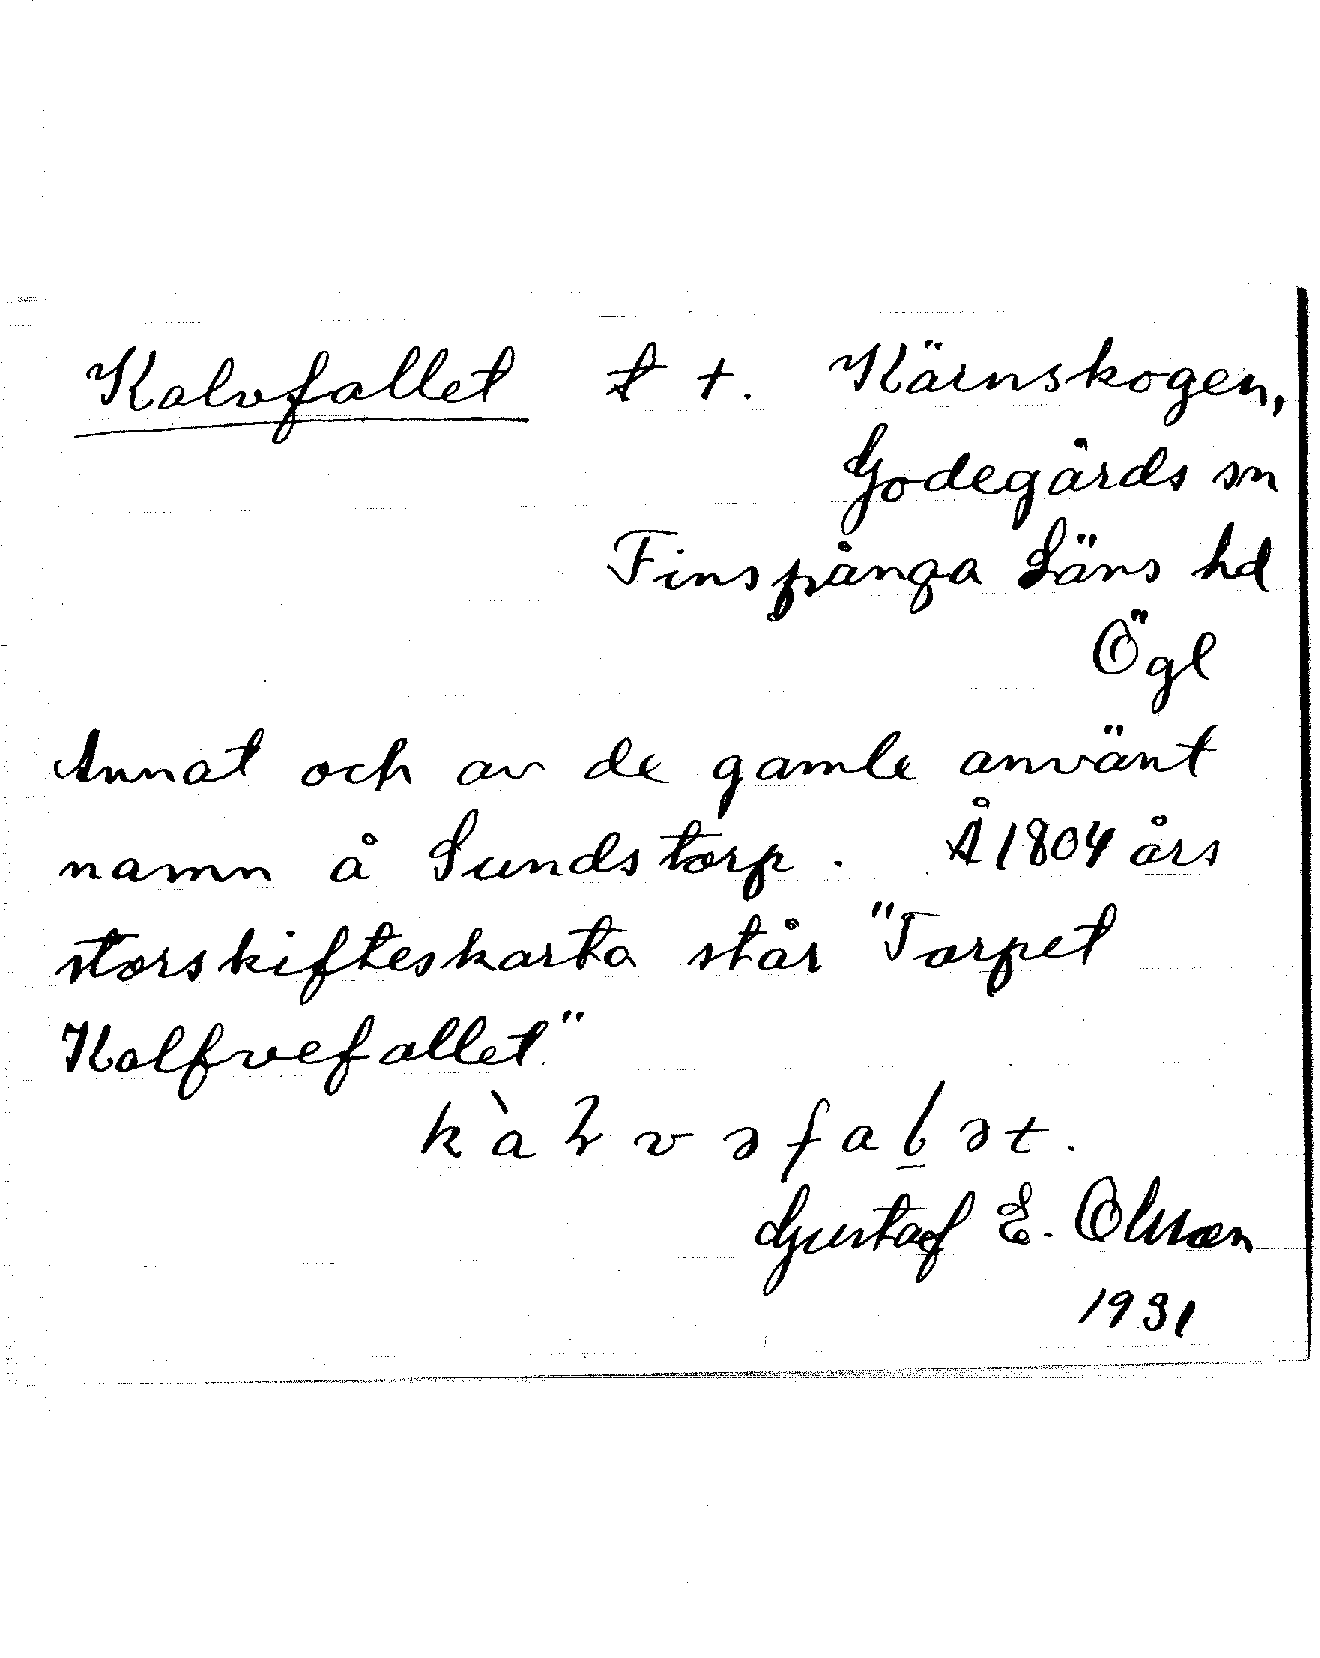 Kalvfallet t t. Kärnskogen,
Godegårds sn
Finspånga Läns hd
Ögl
Annat och av de gamle använt
namn å Sundstorp. Å 1804 års
storskifteskarta står "Torpet
Kalfvefallet"
Gustaf E. Olsson
1931